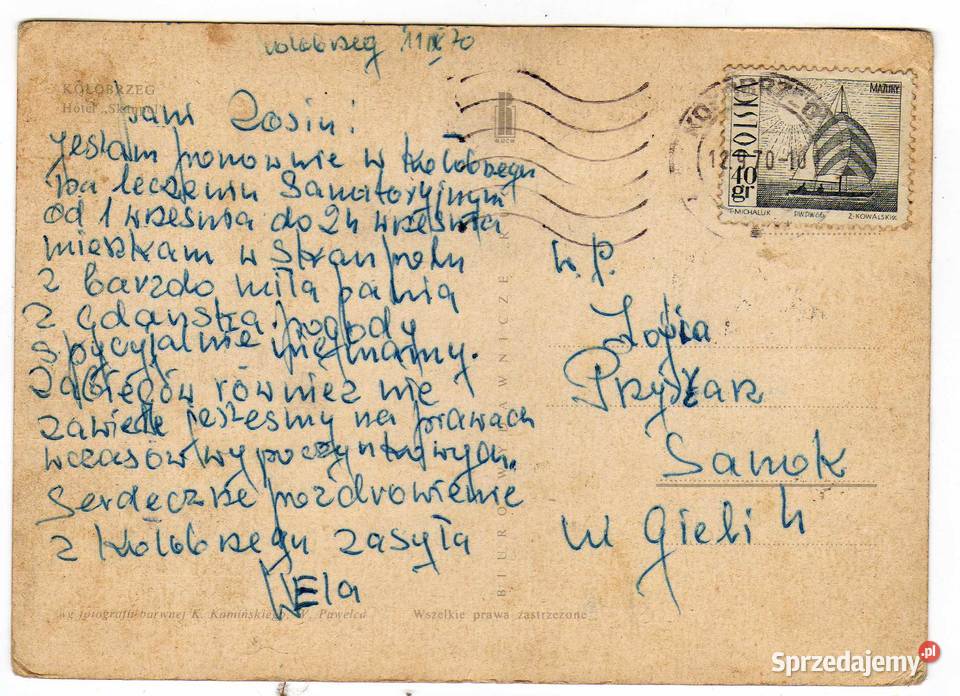 Kołobrzeg 11 IX 70
KOŁOBRZEG
Hotel „Skanpol"
RUCH
Pani Zosiu!
Jestem ponownie w Kołobrzegu
na leczeniu Sanatoryjnym
od 1 września do 24 września
mieszkam w Skanpolu
z barzdo miłą panią
z Gdańska. pogody
spycyjalnie nie mamy.
Zabiegów również nie
zawiele jesteśmy na prawach
wczasów wypoczynkowych.
Serdeczne pozdrowienie
z Kołobrzegu zasyła
Hela
wg fotografii barwnej K. Kamińskiego, W. Pawelca
Wszelkie prawa zastrzeżone
BIURO WYDAWNICZE RUCH
KOŁOBRZEG
12.9.70-10
MAZURY
POLSKA
40 gr
F. MICHALUK PWPW 66 Z. KOWALSKI
W. P.
Zofia
Sanok
Sprzedajemy.pl